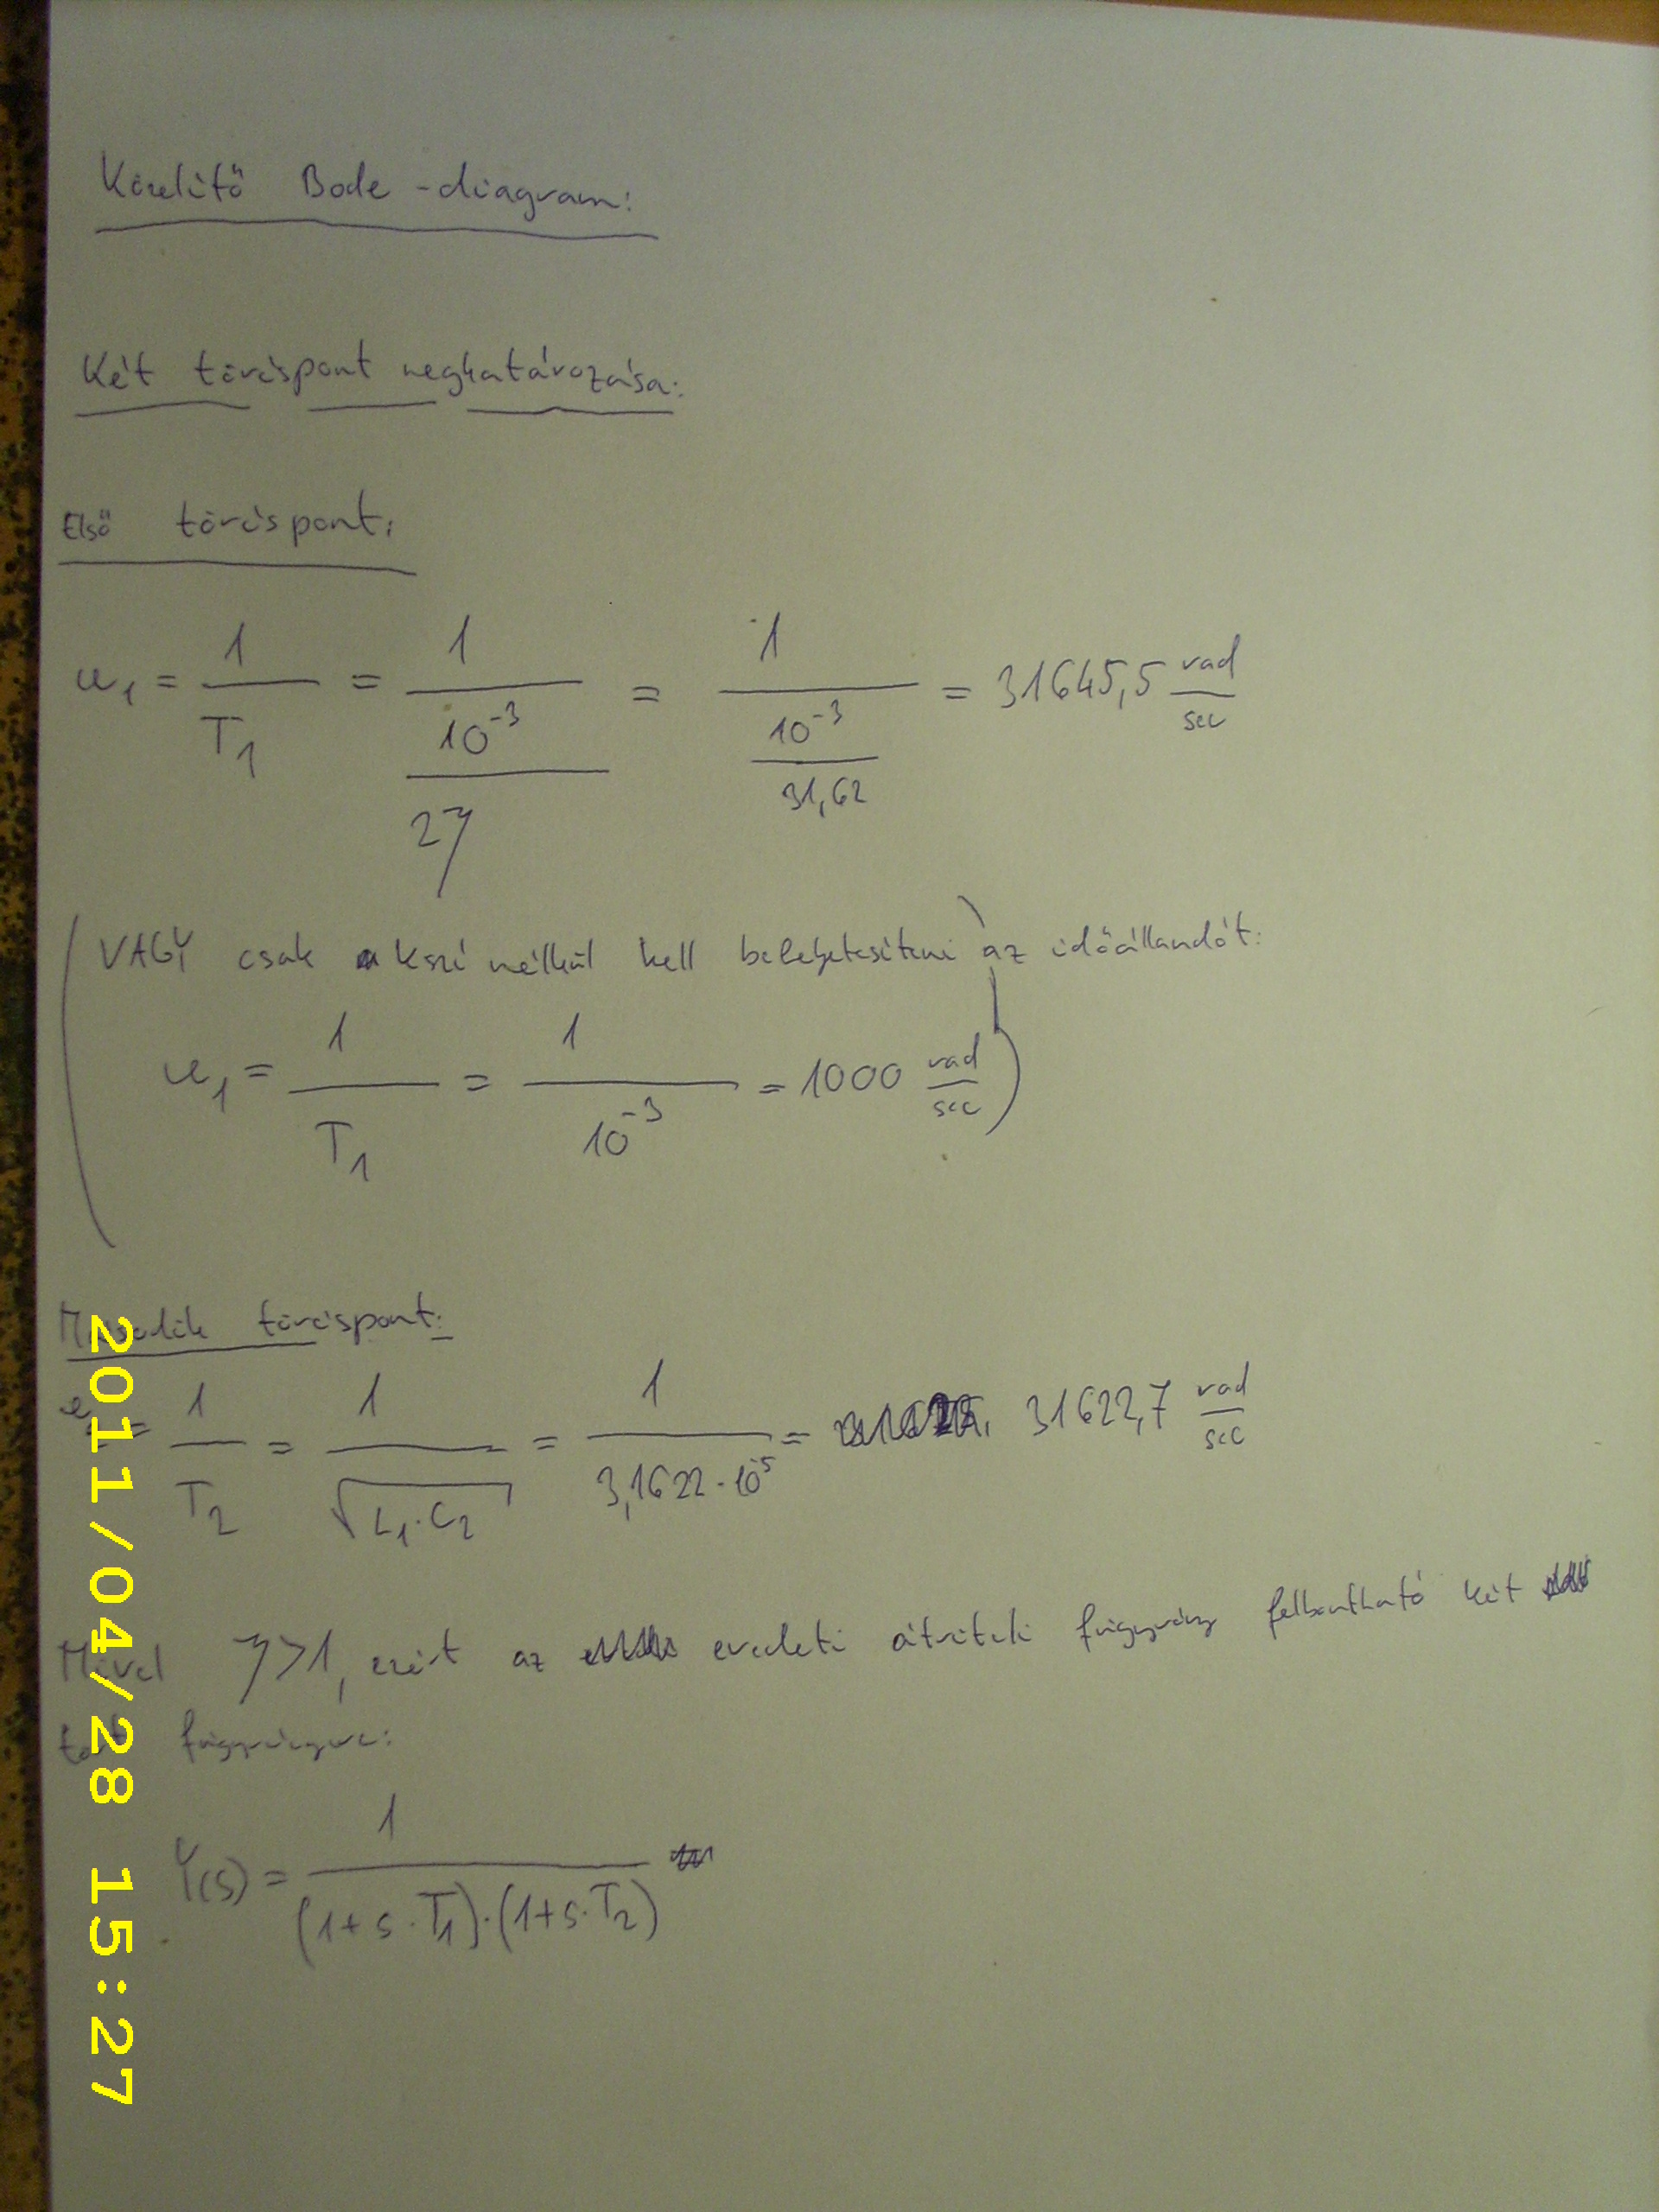 Közelítő Bode-diagram:
Két töréspont meghatározása:
Első töréspont:
ω₁ = 1/T₁ = 1/(10⁻³/2ξ) = 1/(10⁻³/31,62) = 31645,5 rad/sec
(VAGY csak a kszí nélkül kell behelyetesíteni az időállandót:
ω₁ = 1/T₁ = 1/10⁻³ = 1000 rad/sec)
Második töréspont:
= 1/T₂ = 1/√(L₁·C₂) = 1/(3,1622·10⁻⁵) = 31622,7 rad/sec
Mivel ξ>1, ezért az eredeti átviteli függvény felbontható két
függvényre:
Y(s) = 1/((1+s·T₁)·(1+s·T₂))
2011/04/28 15:27